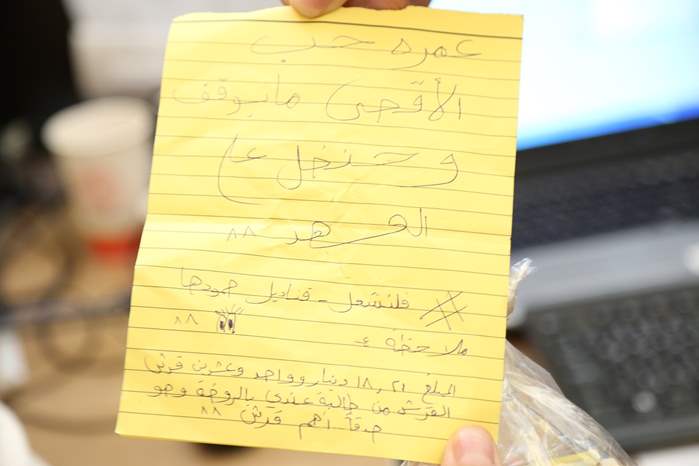 عمره حب
الأقصى مابيوقف
وحنضل ع
العهد ^^
# فلنشعل - قناديل صمودها
^^
ملاحظة :-
المبلغ ١٨,٢١ دينار وواحد وعشرين قرش
القرش من طالبة عندي بالروضة وهو
حقاً أهم قرش ^^